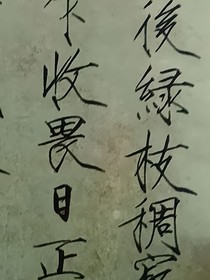 後緑枝稠
收畏日正